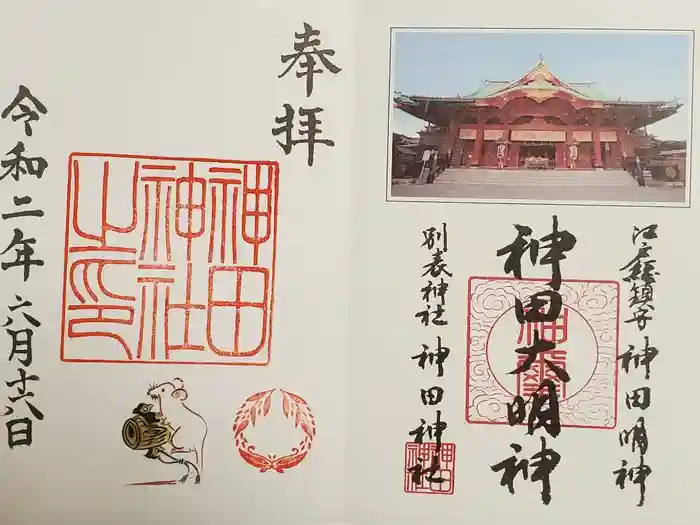 江戸総鎮守 神田明神
神田大明神
別表神社 神田神社
神田
神社
奉拝
神田
神社
之印
令和二年六月十八日